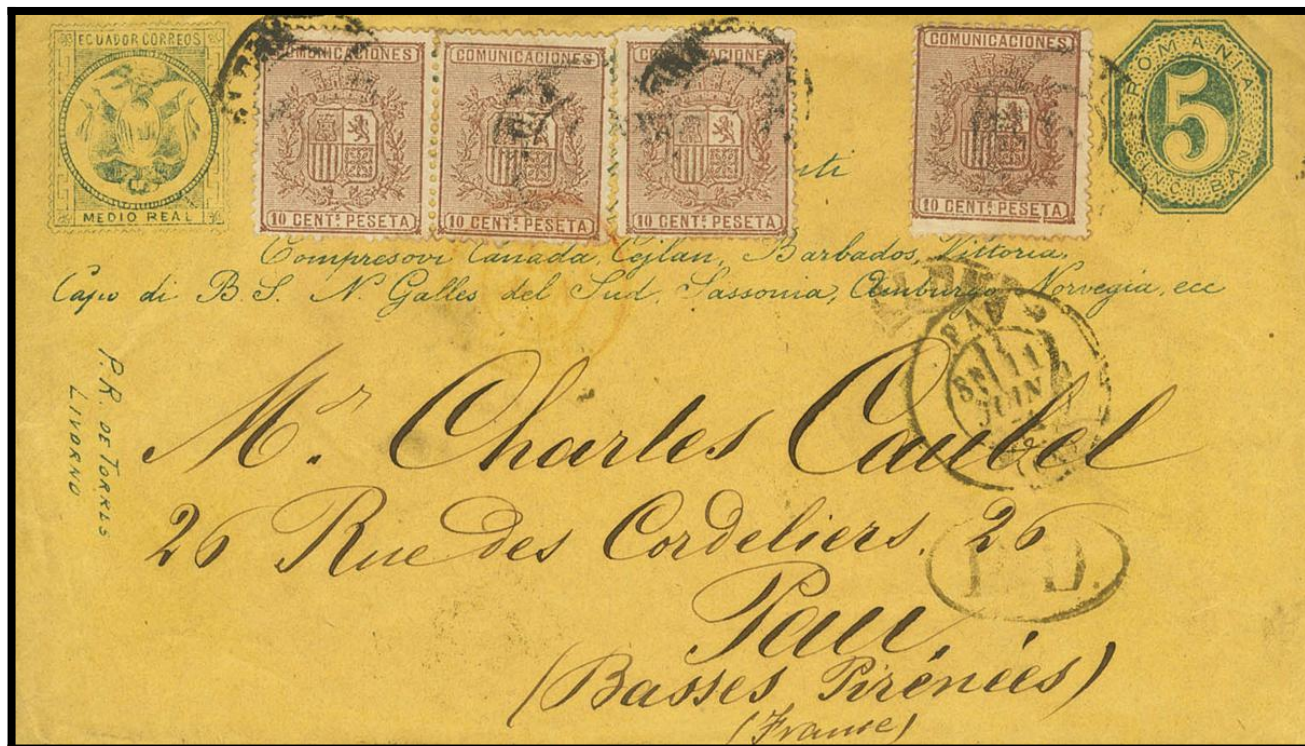 ECUADOR CORREOS
MEDIO REAL
COMUNICACIONES
10 CENT.ˢ PESETA
COMUNICACIONES
10 CENT.ˢ PESETA
COMUNICACIONES
10 CENT.ˢ PESETA
COMUNICACIONES
10 CENT.ˢ PESETA
ROMANIA
5
CINCI BANI
Compresovi Canada, Cejlan, Barbados, Vittoria,
Capo di B. S. N. Galles del Sud, Sassonia, Amburgo, Norvegia, ecc
P.R. DE TORRES
LIVORNO
PAU
11
JUIN
Mʳ. Charles Caubel
26 Rue des Cordeliers. 26
P.D.
Pau.
(Basses Pirénées)
(France)